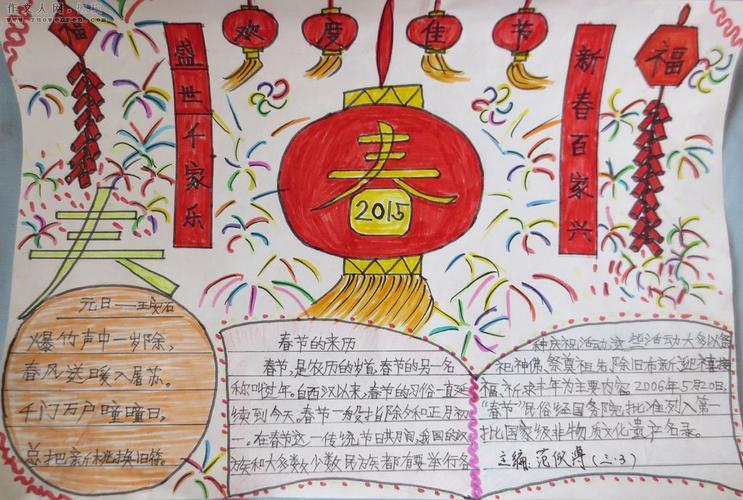 作文人网
欢度佳节
福
盛世千家乐
新春百家兴
福
春
2015
春
元日——王安石
爆竹声中一岁除，
春风送暖入屠苏。
千门万户曈曈日，
总把新桃换旧符。
春节的来历
春节，是农历的岁首，春节的另一名
称叫过年。自西汉以来，春节的习俗一直延
续到今天。春节一般指除夕和正月初
一。在春节这一传统节日期间，我国的汉
族和大多数少数民族都有要举行各
种庆祝活动，这些活动大多以祭
祀神佛、祭奠祖先、除旧布新、迎禧接
福、祈求丰年为主要内容。2006年5月20日，
"春节"民俗经国务院批准列入第一
批国家级非物质文化遗产名录。
主编：范仪溥（三.3）